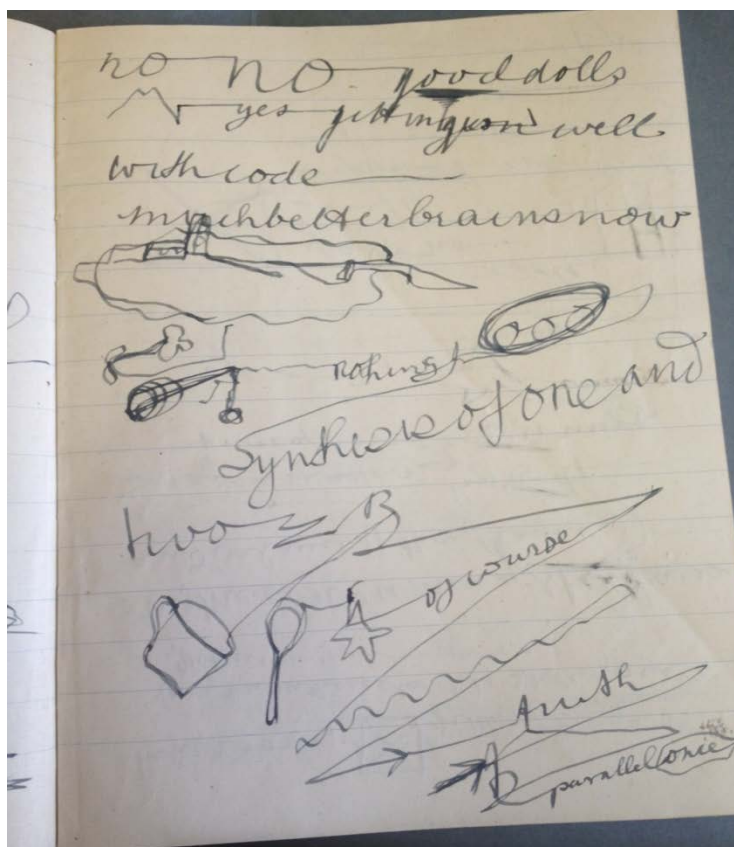 no no good dolls
yes getting on well
with code
much better brains now
nothing
Synthesis of one and
two B
of course
truth
parallel once